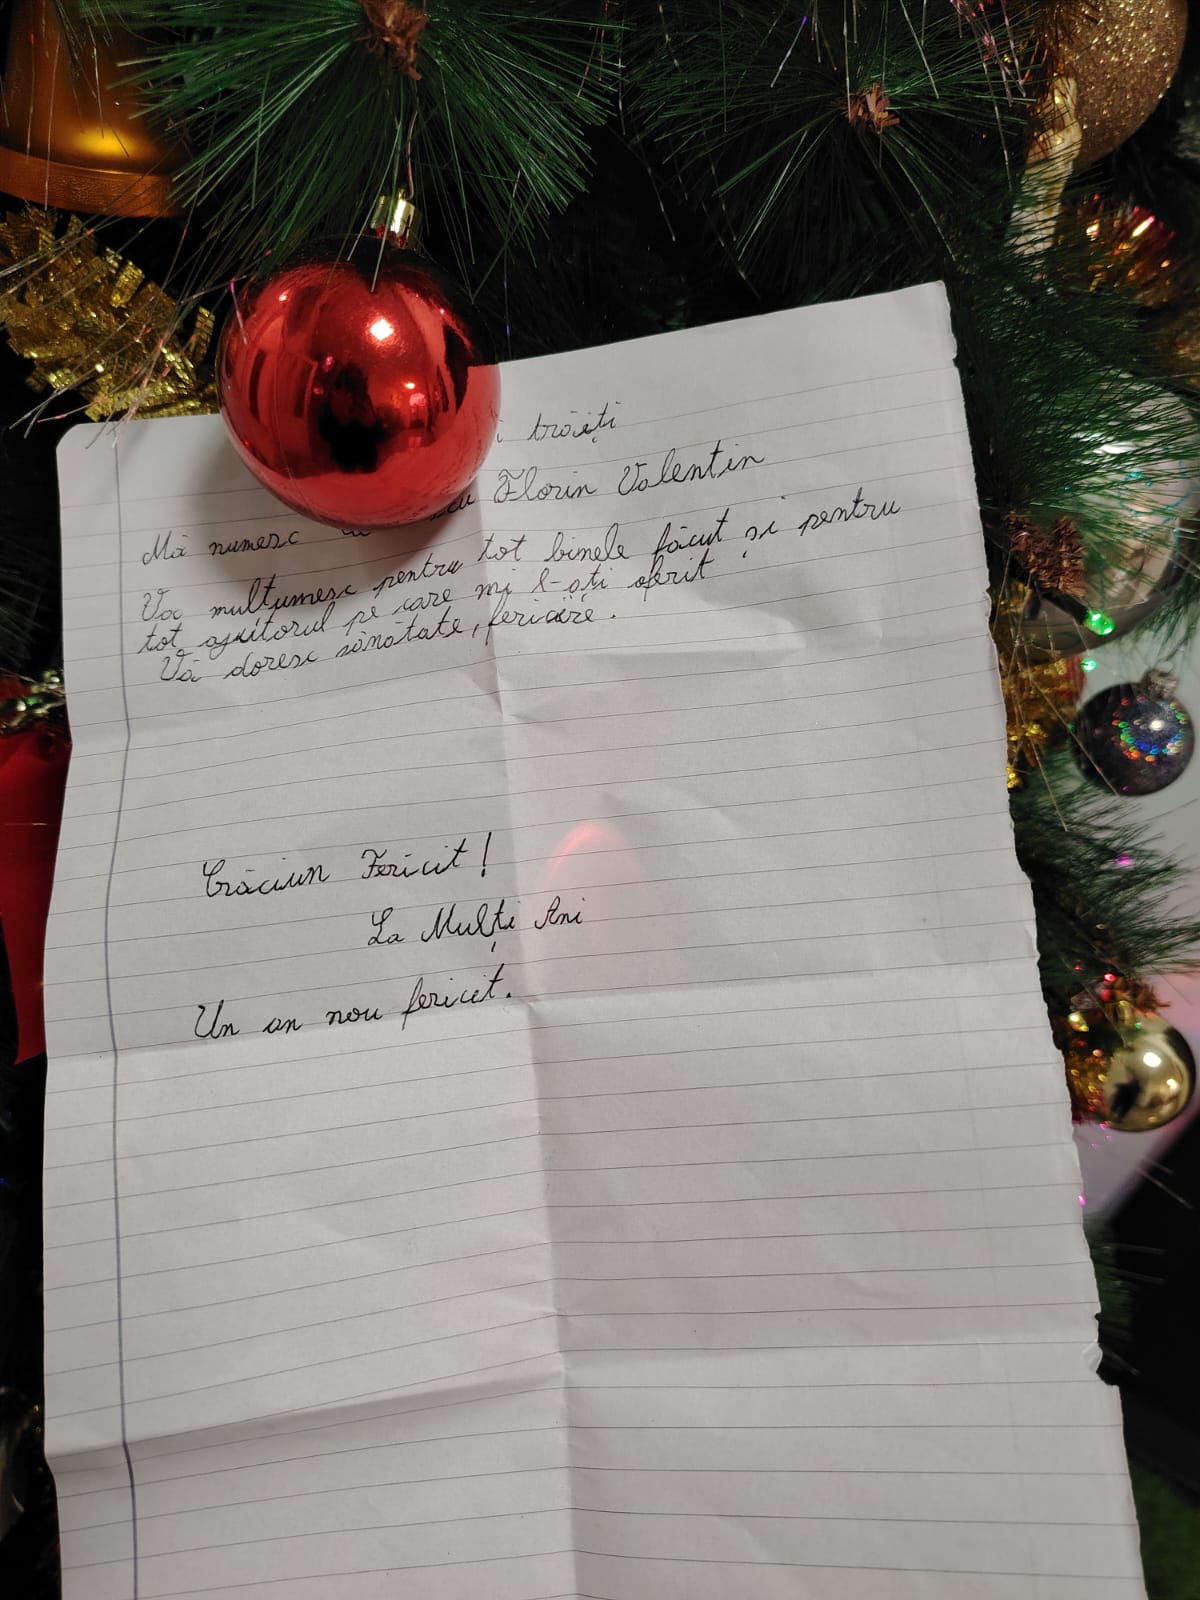 i trăiți
Mă numesc Florin Valentin
Vă mulțumesc pentru tot binele făcut și pentru
tot ajutorul pe care mi l-ați oferit
Vă doresc sănătate, fericire.
Crăciun Fericit!
La Mulți Ani
Un an nou fericit.